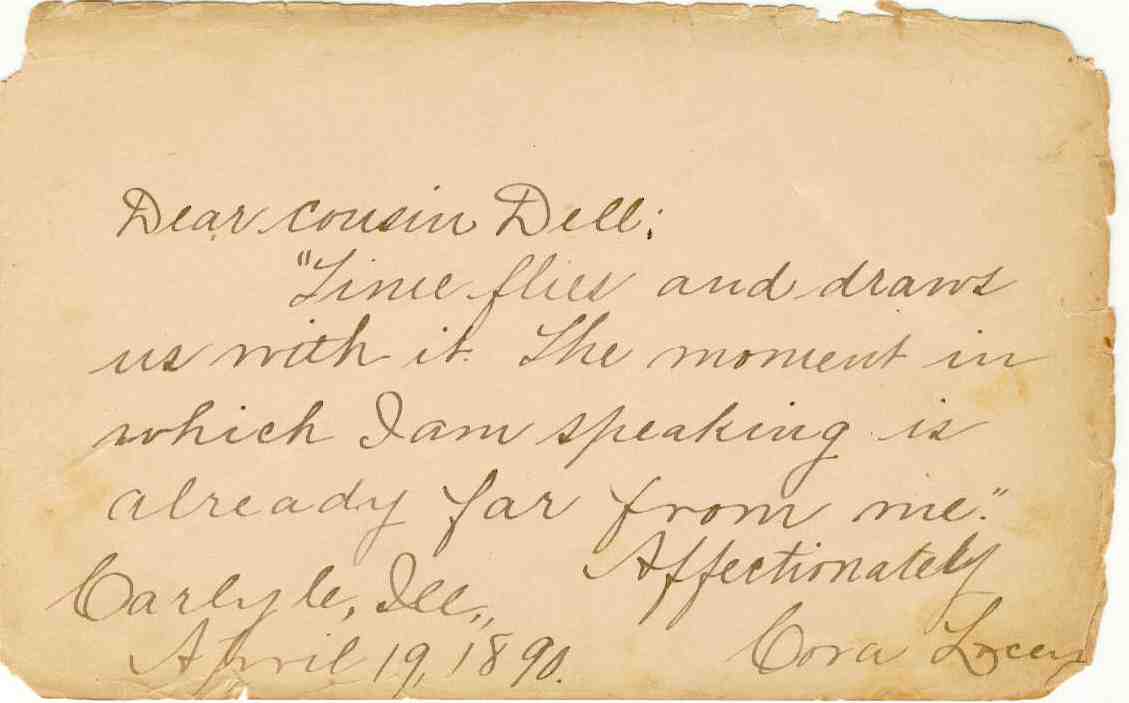 Dear cousin Dell:
"Time flies and draws
us with it. The moment in
which I am speaking is
already far from me."
Affectionately
Carlyle, Ill.,
April 19, 1890.
Cora Lacey